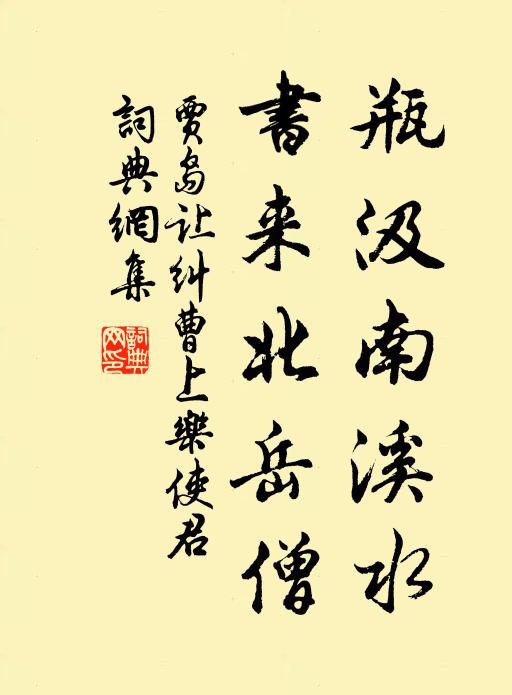 瓶汲南溪水
書来北岳僧
賈島让糾曹上樂使君
詞典網集
詞典网印